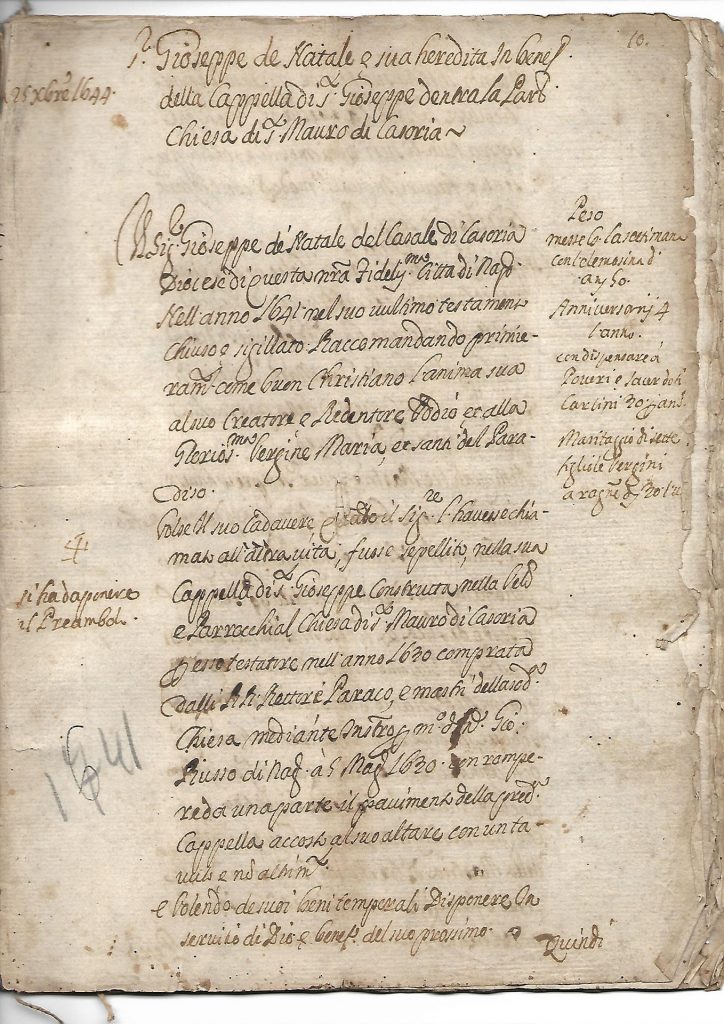 10.
25 xbre 1644.
Gioseppe de Natale e sua heredita In benef.
della Cappella di S. Gioseppe dentra la Par.
Chiesa di S. Mauro di Casoria
Il Sig. Gioseppe de Natale del Casale di Casoria
Diocese di questa nra Fidelis.ma Città di Nap.
Nell'anno 1641 nel suo ultimo testamento
chiuso e sigillato Raccomandando primie-
ram. come buon Christiano l'anima sua
al suo Creatore e Redentore Iddio, et alla
Glorios.ma Vergine Maria, et santi del Para-
diso.
Volse Il suo Cadavere, il Sig.re l'havesse chia-
mato all'altra vita, fusse sepellito, nella sua
Cappella di S. Gioseppe Constructa nella Ven.
e Parrocchial Chiesa di S. Mauro di Casoria
esso testatore nell'anno 1630 comprata
dalli RR. Rettore Paraco, e mastri della sod.
Chiesa mediante Instro. m. di Gio:
Russo di Nap. à 5 Mag. 1630. con rompe-
re da una parte il pavimento della pred.
Cappella accosto al suo altare con un ta-
uto e nò altrim.
e Volendo de suoi beni temporali Disponere In
servitio di Dio, e benef. del suo prossimo.
Quindi
Peso
messe 6. la settimana
con l'elemosina di
an. 50.
Anniversarij 4
l'anno.
con dispensare à
Poveri
Carlini 20
Maritaggio di sette
figliole Vergini
a ragne di 20 l'u
si ha da ponere
il Preambol.
1641